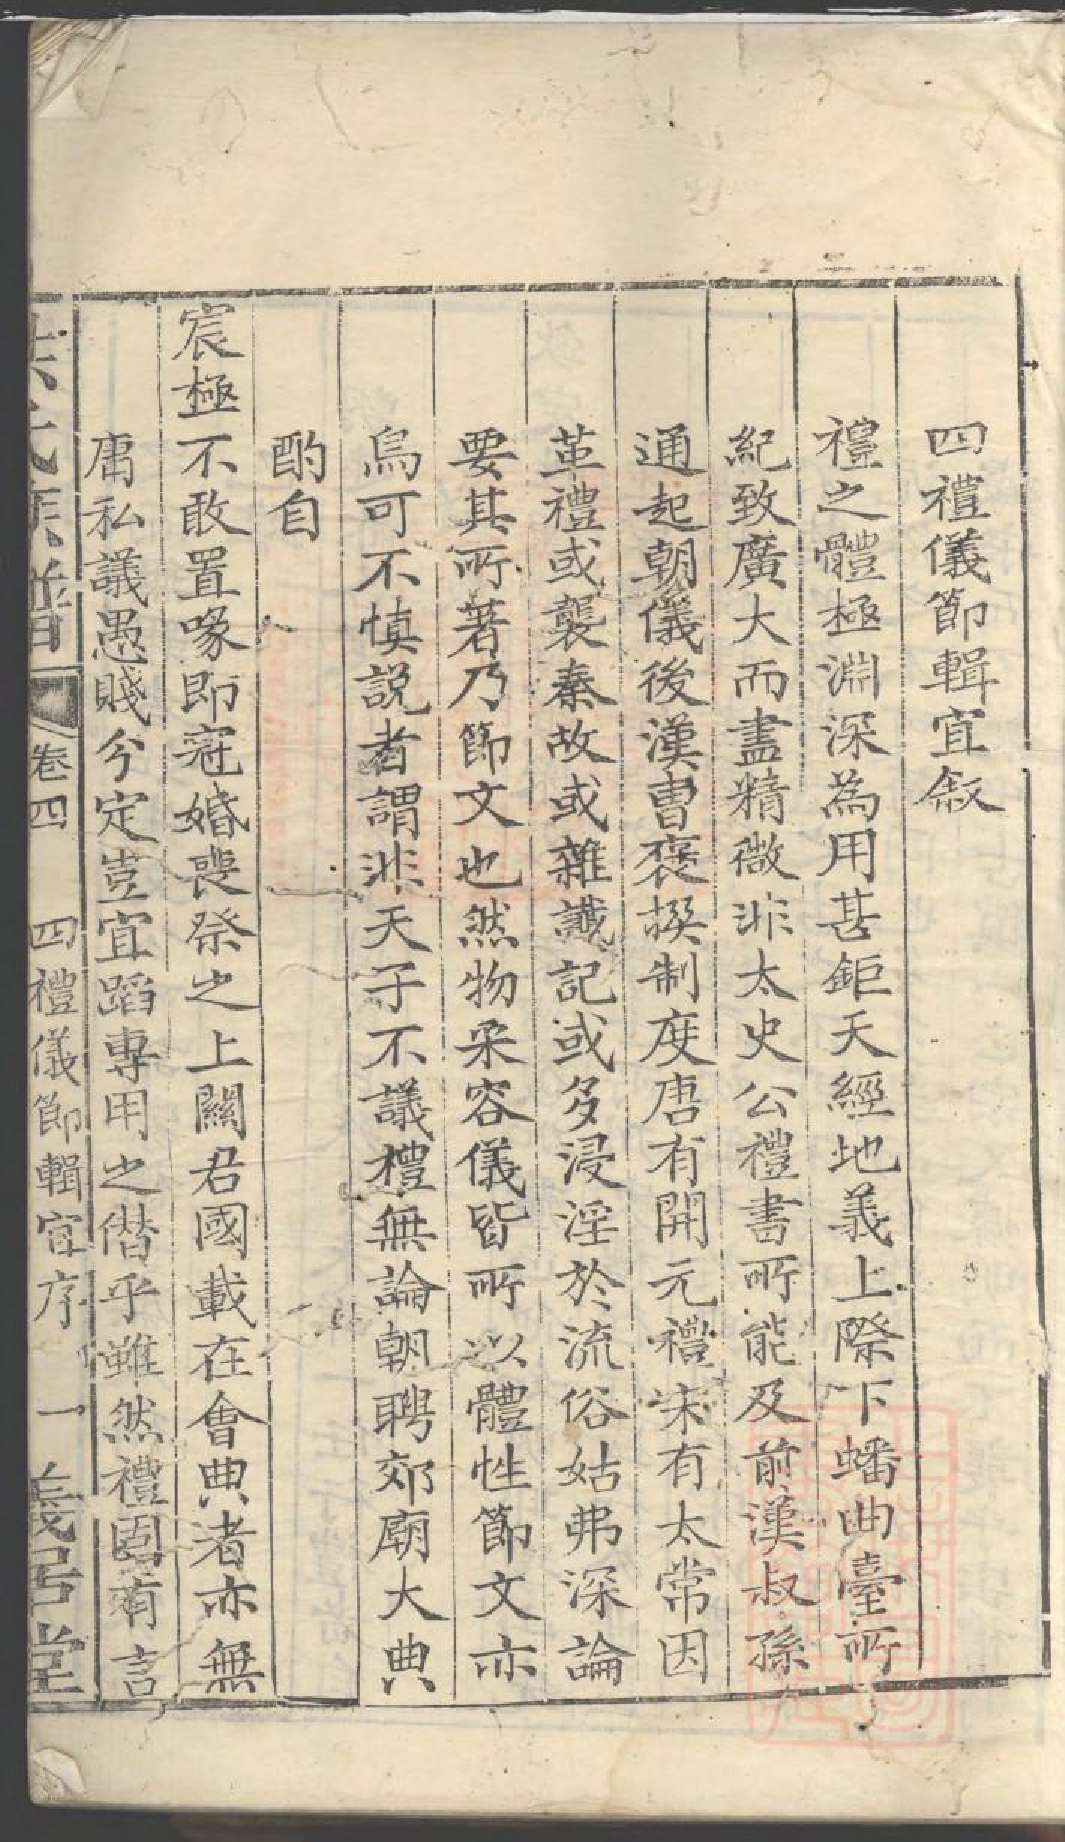 四禮儀節輯宜敘
禮之體極淵深為用甚鉅天經地義上際下蟠曲臺所
紀致廣大而盡精微非太史公禮書所能及前漢叔孫
通起朝儀後漢曹褒撰制度唐有開元禮宋有太常因
革禮或襲秦故或雜讖記或多浸淫於流俗姑弗深論
要其所著乃節文也然物采容儀皆所以體性節文亦
烏可不慎説者謂非天子不議禮無論朝聘郊廟大典
酌自
宸極不敢置喙即冠婚喪祭之上關君國載在會典者亦無
庸私議愚賤分定豈宜蹈專用之僭乎雖然禮固有言
卷四 四禮儀節輯宜序 一 義居堂